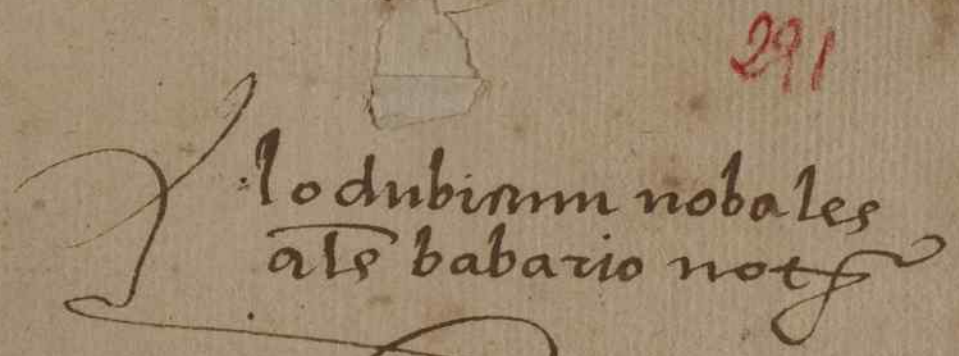 291
lodubicum nobales
als babario not